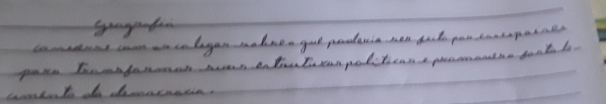 Geografia
converse com os colegas sobre o que poderia ser feito por esses países
para transformar suas estruturas políticas e promover o fortale-
cimento da democracia.